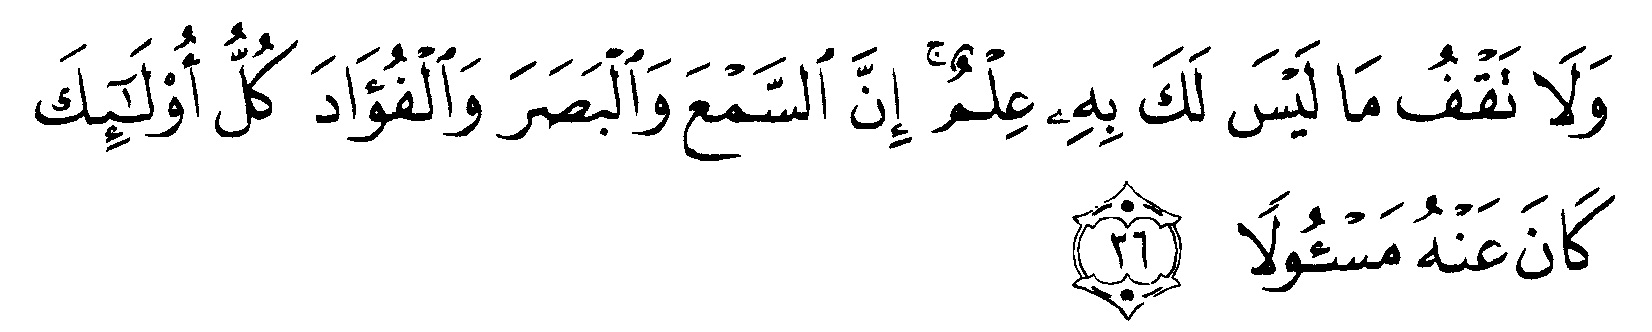 وَلَا تَقْفُ مَا لَيْسَ لَكَ بِهِۦ عِلْمٌ ۚ إِنَّ ٱلسَّمْعَ وَٱلْبَصَرَ وَٱلْفُؤَادَ كُلُّ أُو۟لَـٰٓئِكَ
كَانَ عَنْهُ مَسْـُٔولًا ٣٦